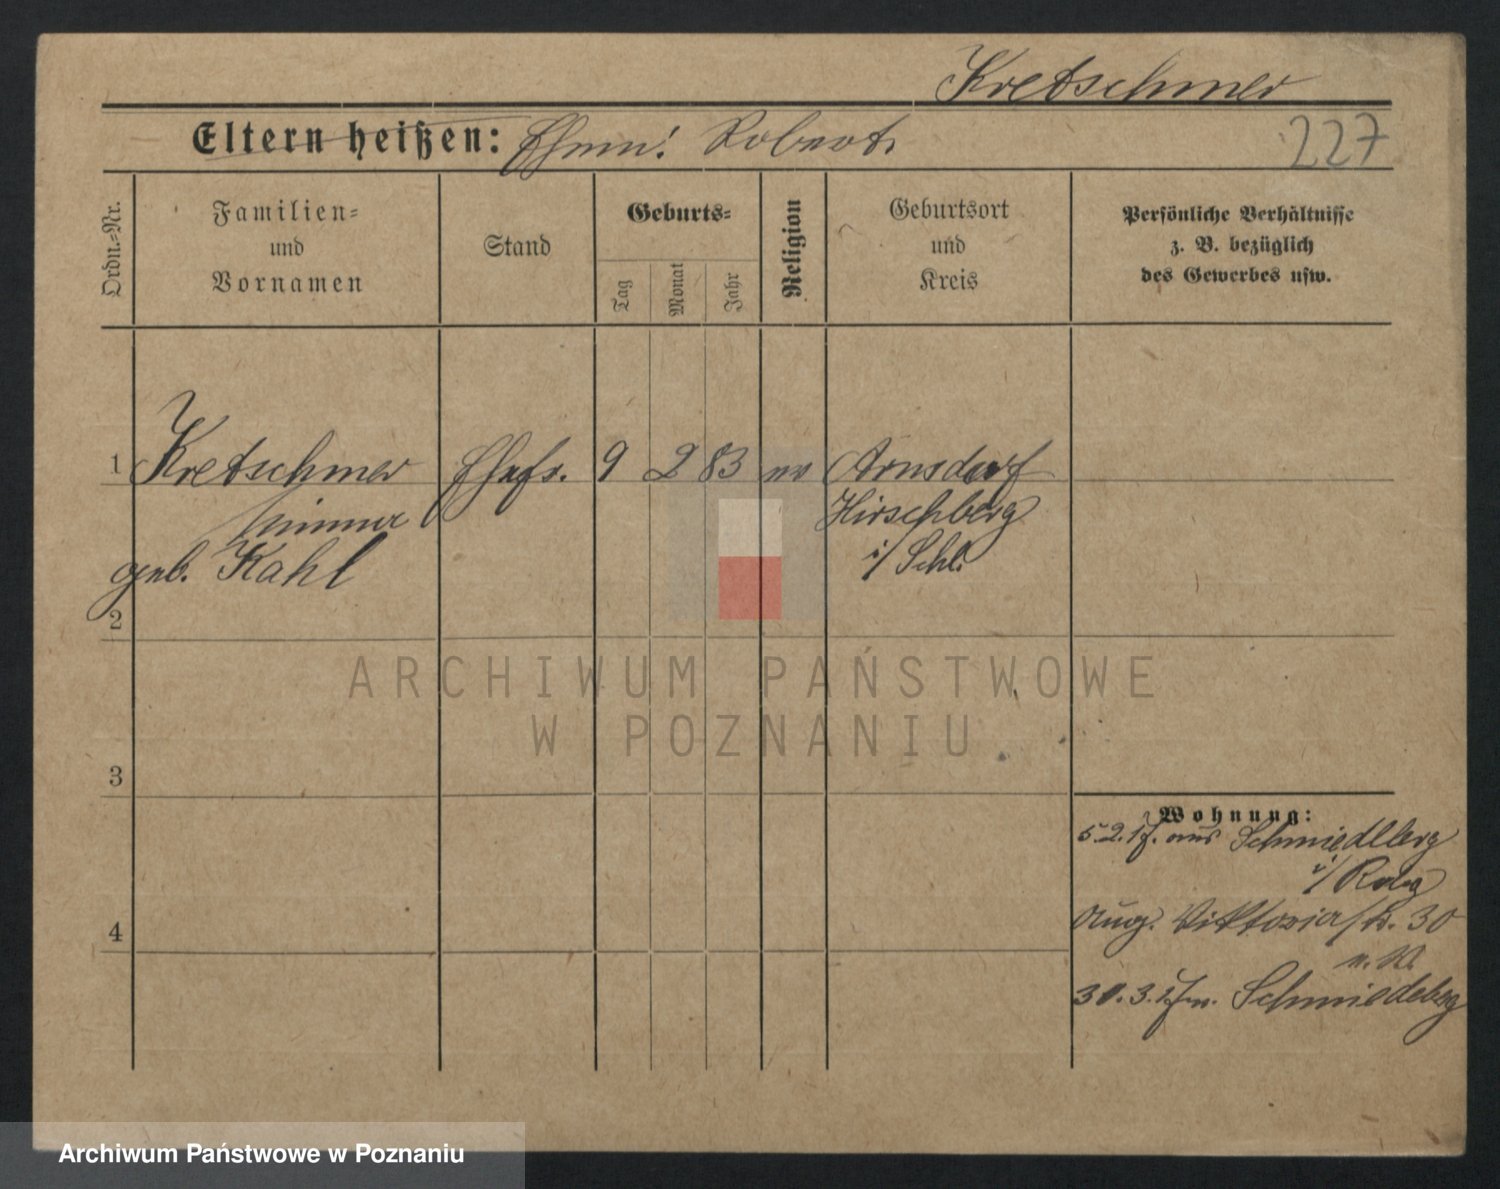 Kretschmer
Eltern heißen: Ehem: Robert.
227
Ordn.-Nr.
Familien-
und
Vornamen
Stand
Geburts-
Tag
Monat
Jahr
Religion
Geburtsort
und
Kreis
Persönliche Verhältnisse
z. B. bezüglich
des Gewerbes usw.
1 Kretschmer Ehefr. 9 2 83 ev Arnsdorf
Hirschberg
geb. Kahl i/Schl.
2
3
4
Wohnung:
5.2.17. aus Schmiedlberg
i/
Aug. Viktoriastr. 30
30.3.17 n. Schmiedebrg
ARCHIWUM PAŃSTWOWE
W POZNANIU
Archiwum Państwowe w Poznaniu